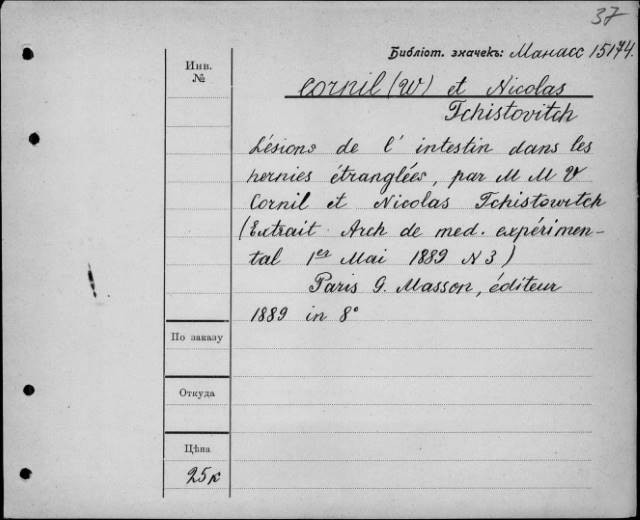 37
Библіот. значекъ: Манасс 15174.
Инв.
№
Cornil (W) et Nicolas
Tchistovitch
Lésions de l' intestin dans les
hernies étranglées, par M M V
Cornil et Nicolas Tchistowitch
(Extrait Arch de med. expérimen-
tal 1er Mai 1889 N 3)
Paris G. Masson, éditeur
1889 in 8°
По заказу
Откуда
Цѣна
25к